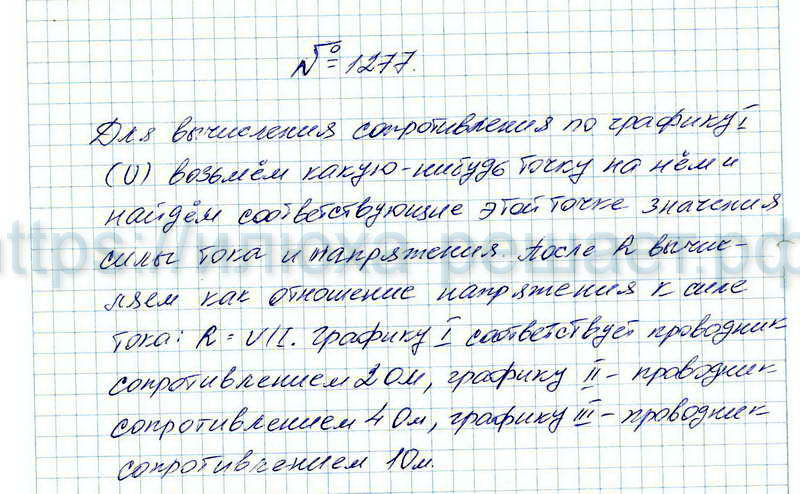 № 1277.
Для вычисления сопротивления по графику I
(U) возьмём какую-нибудь точку на нём и
найдём соответствующие этой точке значения
силы тока и напряжения. После R вычис-
ляем как отношение напряжения к силе
тока: R = U/I. Графику I соответствует проводник
сопротивлением 2 Ом, графику II - проводник
сопротивлением 4 Ом, графику III - проводник
сопротивлением 1 Ом.